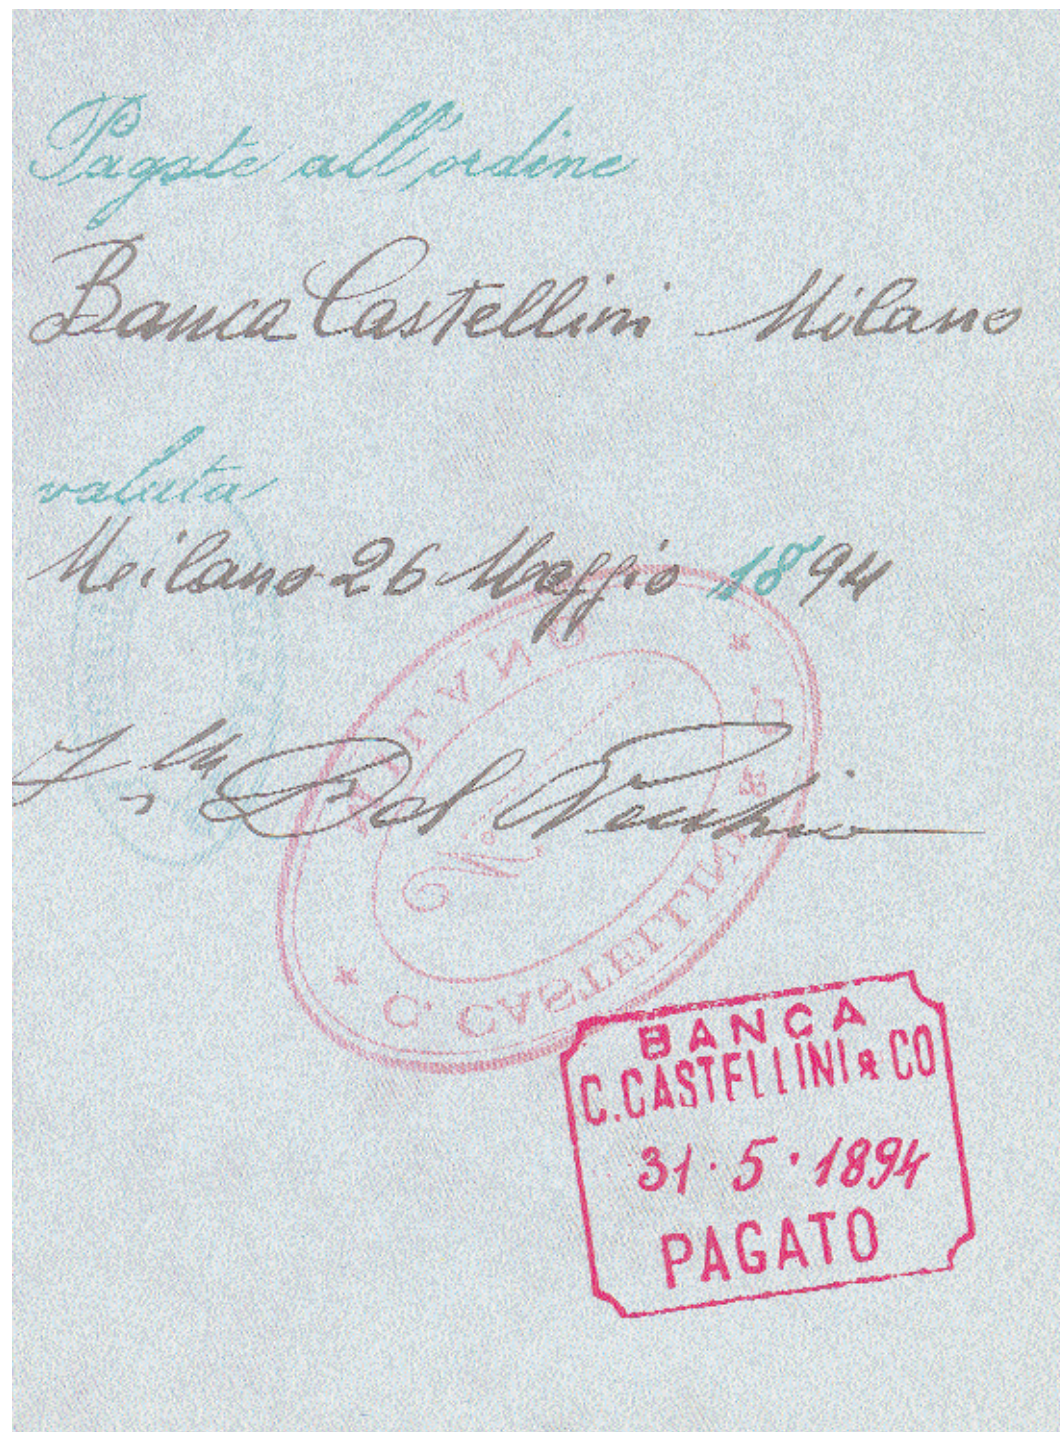 Pagate all'ordine
Banca Castellini Milano
valuta
Milano 26 Maggio 1894
F.lli Del Vecchio
MILANO
C. CASTELLINI & C.
BANCA
C. CASTELLINI & CO
31·5·1894
PAGATO